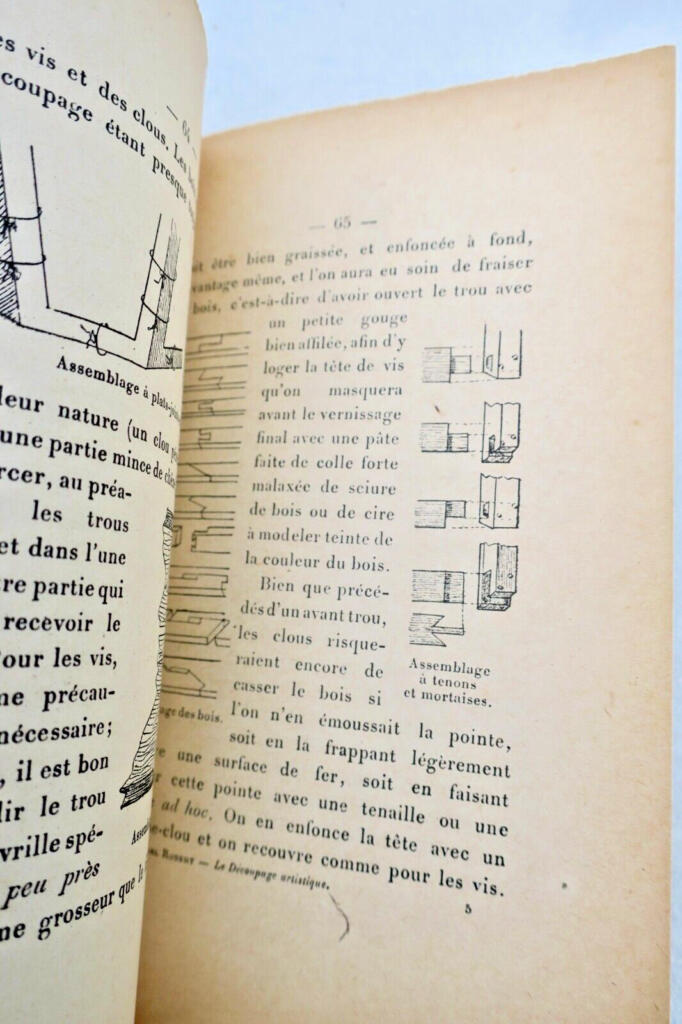 es vis et des clous. Les
coupage étant presque
— 64 —
Assemblage à plats-join
leur nature (un clou
une partie mince de
rcer, au préa-
les trous
et dans l'une
re partie qui
recevoir le
our les vis,
ne précau-
nécessaire;
, il est bon
lir le trou
vrille spé-
peu près
ne grosseur que le
Assem
— 65 —
it être bien graissée, et enfoncée à fond,
vantage même, et l'on aura eu soin de fraiser
bois, c'est-à-dire d'avoir ouvert le trou avec
un petite gouge
bien affilée, afin d'y
loger la tête de vis
qu'on masquera
avant le vernissage
final avec une pâte
faite de colle forte
malaxée de sciure
de bois ou de cire
à modeler teinte de
la couleur du bois.
Bien que précé-
dés d'un avant trou,
les clous risque-
raient encore de
casser le bois si
l'on n'en émoussait la pointe,
soit en la frappant légèrement
e une surface de fer, soit en faisant
r cette pointe avec une tenaille ou une
ad hoc. On en enfonce la tête avec un
e-clou et on recouvre comme pour les vis.
Assemblage
à tenons
et mortaises.
age des bois.
— Le Découpage artistique.
5